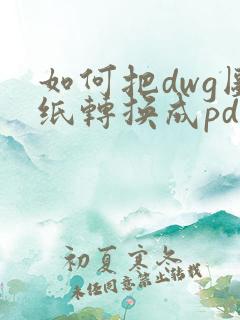 如何把dwg图
纸轉换成pd
初夏寒冬
未经同意禁止转载